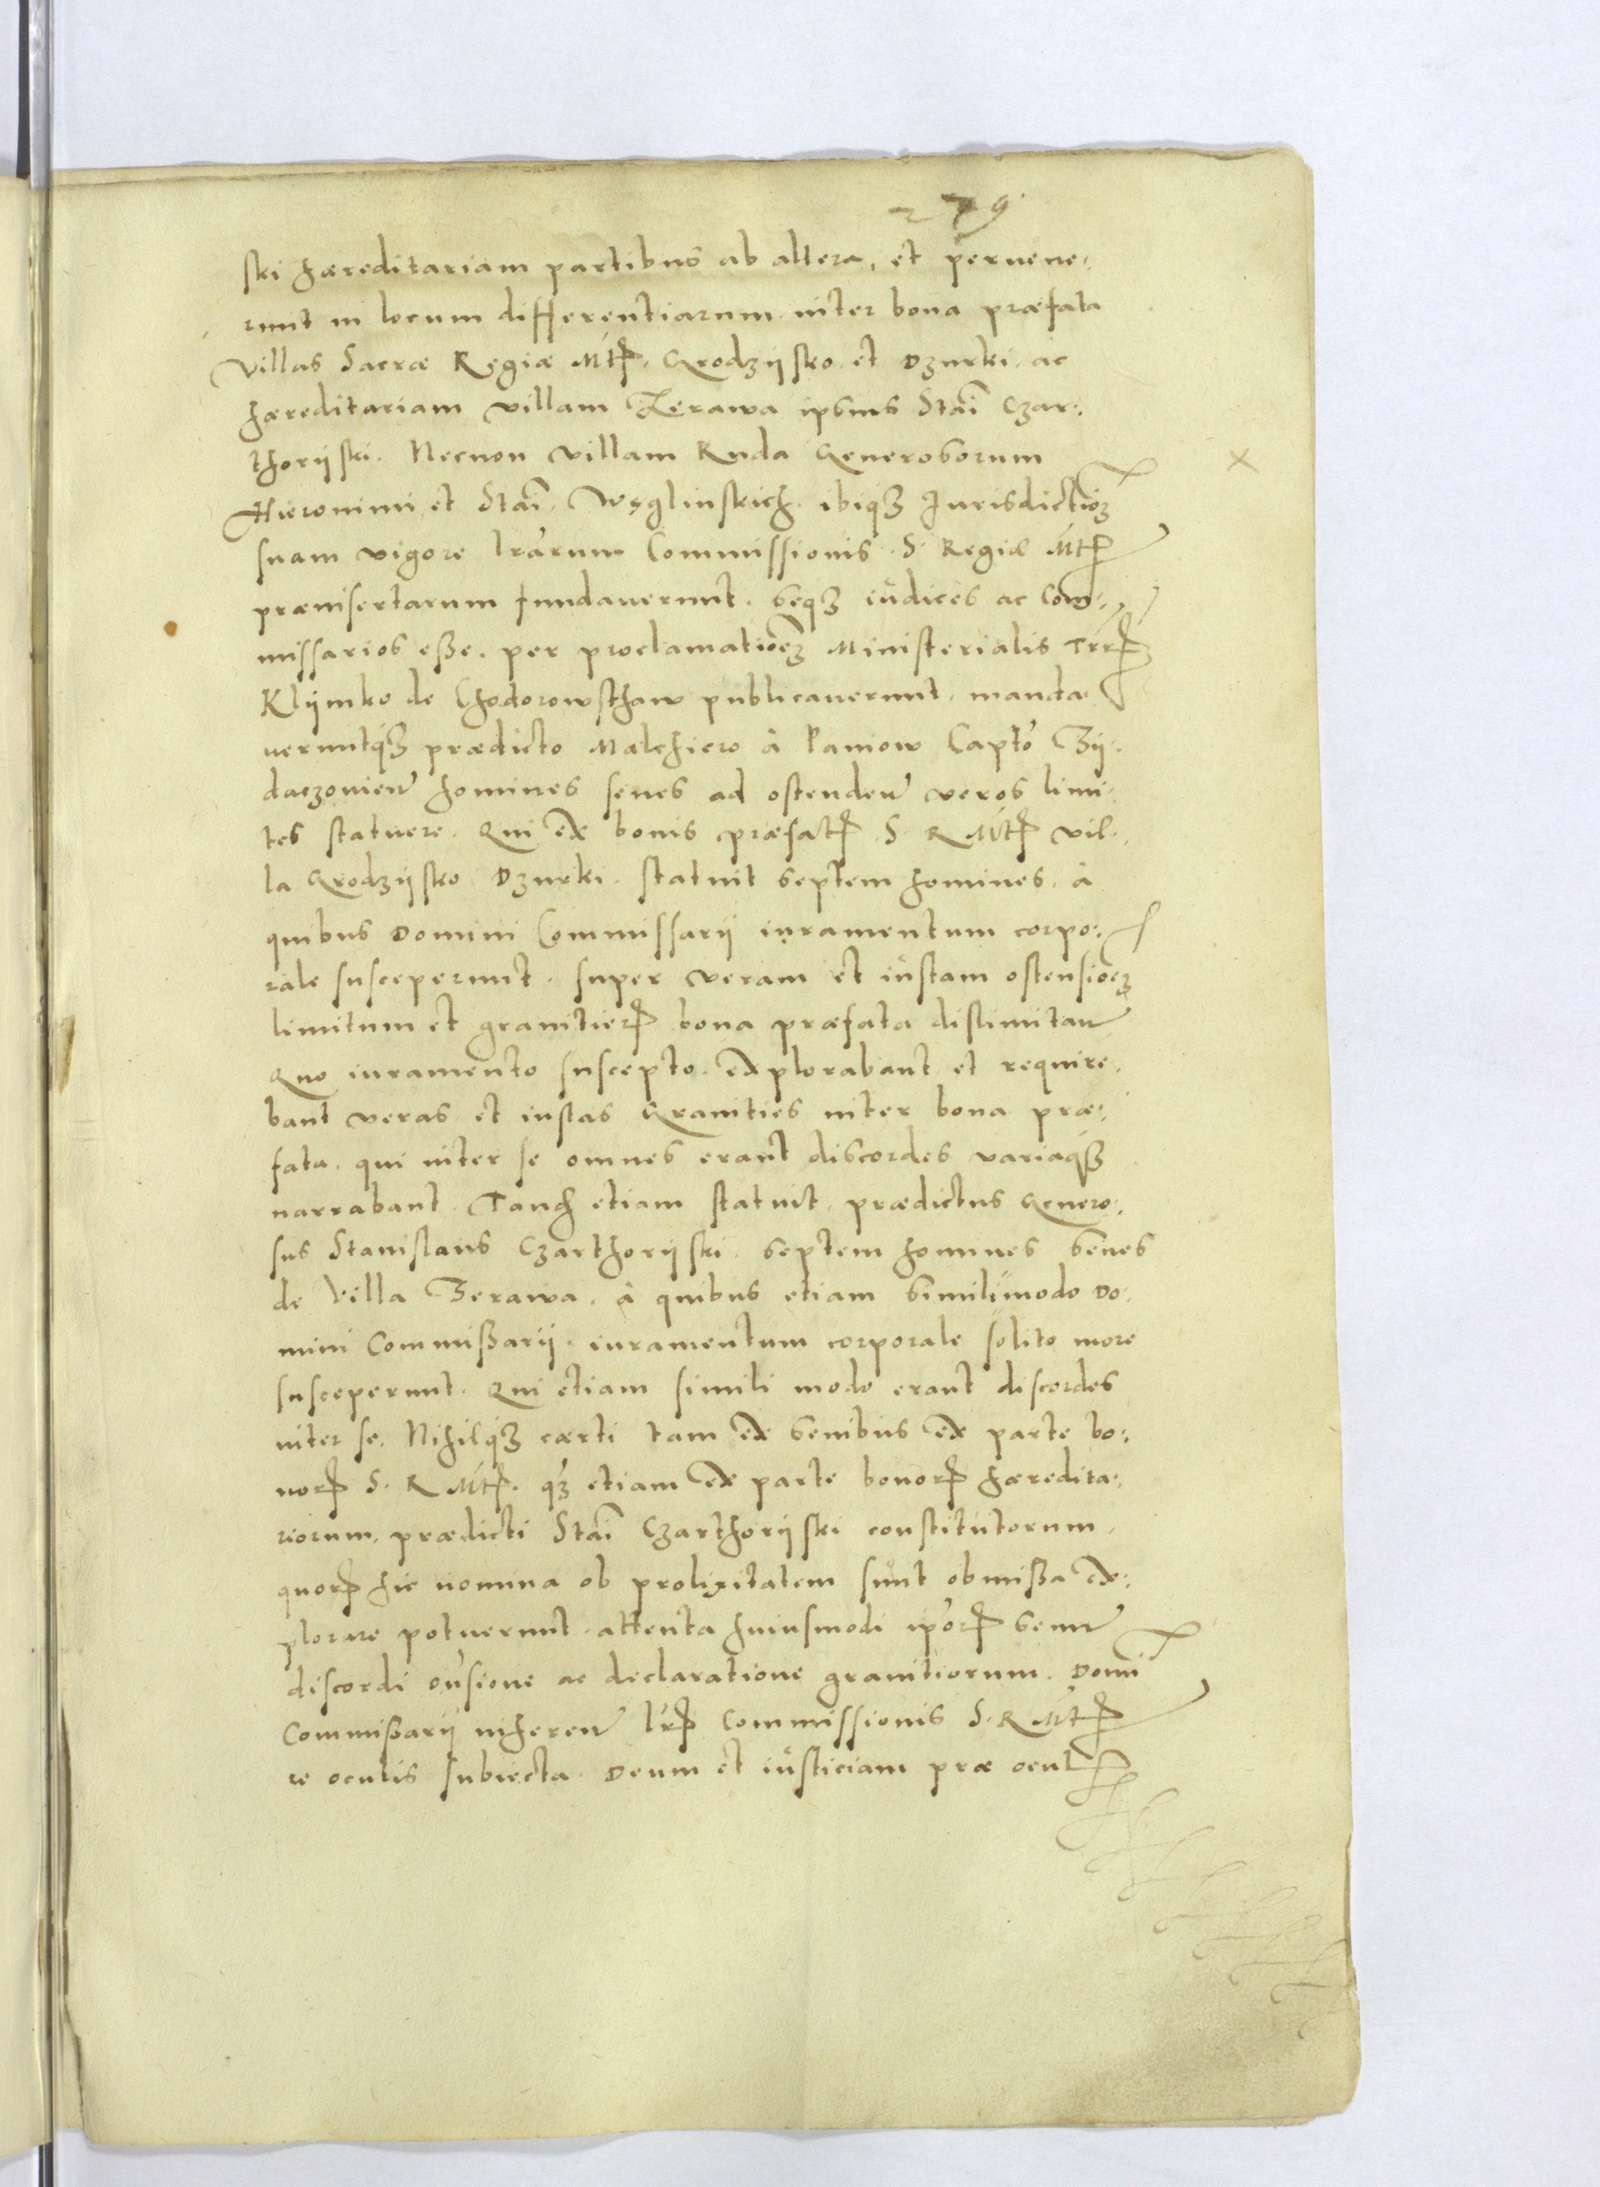 279
ski hæreditariam partibus ab altera, et pervene:
runt in locum differentiarum inter bona præfata
villas Sacræ Regiæ Mtis. Grodzijsko et Dzurki. ac
hæreditariam villam Zerawa ipsius Stai Czar:
thorijski. Necnon villam Ruda Generosorum
Hieronimi et Stai Węglinskich. ibiq3 Jurisdictioē
suam vigore lrarum Commissionis S. Regiæ Mtis
præinsertarum fundaverunt. seq3 iudices ac Com:
missarios esse. per proclamationē Ministerialis Trris
Klijmko de Chodorowsthaw publicaverunt. manda
veruntq3 prædicto Malchiero à Paniow Capto Zij:
daczovien homines senes ad ostenden veros limi:
tes statuere. Qui ex bonis præfatis S R Mtis vil:
la Grodzijsko Dzurki. statuit septem homines. à
quibus Domini Commissarij iuramentum corpo:
rale susceperunt. super veram et iustam ostensioē
limitum et granitierum bona præfata dislimitan
Quo iuramento suscepto. explorabant et require:
bant veras et iustas Granities inter bona præ:
fata. qui inter se omnes erant discordes variaq3
narrabant. Tandem etiam statuit prædictus Genero:
sus Stanislaus Czarthorijski. septem homines senes
de villa Zerawa. à quibus etiam similimodo Do:
mini Commissarij. iuramentum corporale solito more
susceperunt. Qui etiam simili modo erant discordes
inter se. Nihilq3 cærti tam ex senibus ex parte bo:
norum S. R Mtis. q3 etiam ex parte bonorum hæredita:
riorum prædicti Stai Czarthorijski constitutorum
quorum hic nomina ob prolixitatem sunt obmissa ex:
plorare potuerunt. attenta huiusmodi ipsorum senum
discordi onsione ac declaratione granitiorum. Domi
Commissarij inheren lris Commissionis S. R Mtis
re oculis subiecta. Deum et iusticiam præ ocul